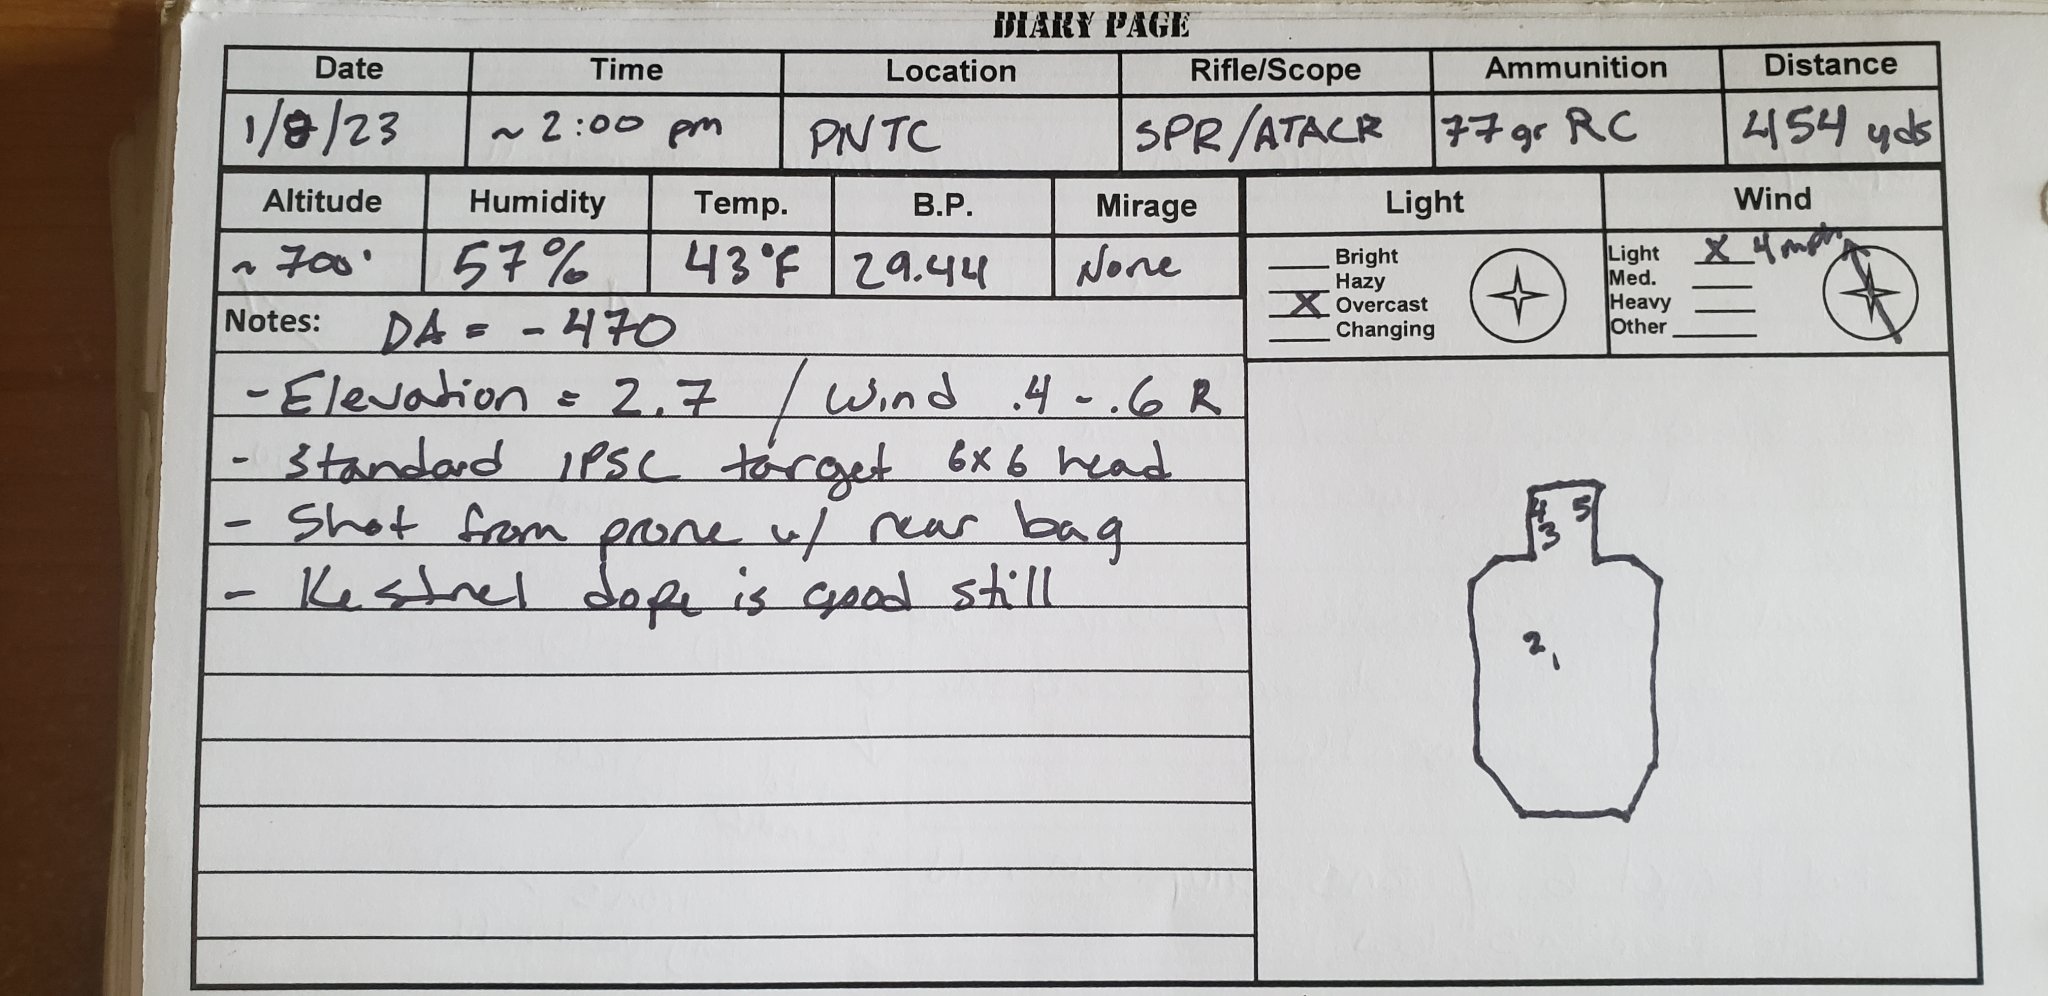 DIARY PAGE
Date Time Location Rifle/Scope Ammunition Distance
1/8/23 ~ 2:00 pm PNTC SPR/ATACR 77gr RC 454 yds
Altitude Humidity Temp. B.P. Mirage Light Wind
~ 700' 57% 43°F 29.44 None
Bright
Hazy
X Overcast
Changing
Light X 4 mph
Med.
Heavy
Other
Notes: DA = - 470
- Elevation = 2.7 / Wind .4 - .6 R
- Standard IPSC target 6x6 head
- Shot from prone w/ rear bag
- Kestrel dope is good still
4 5
3
2
1